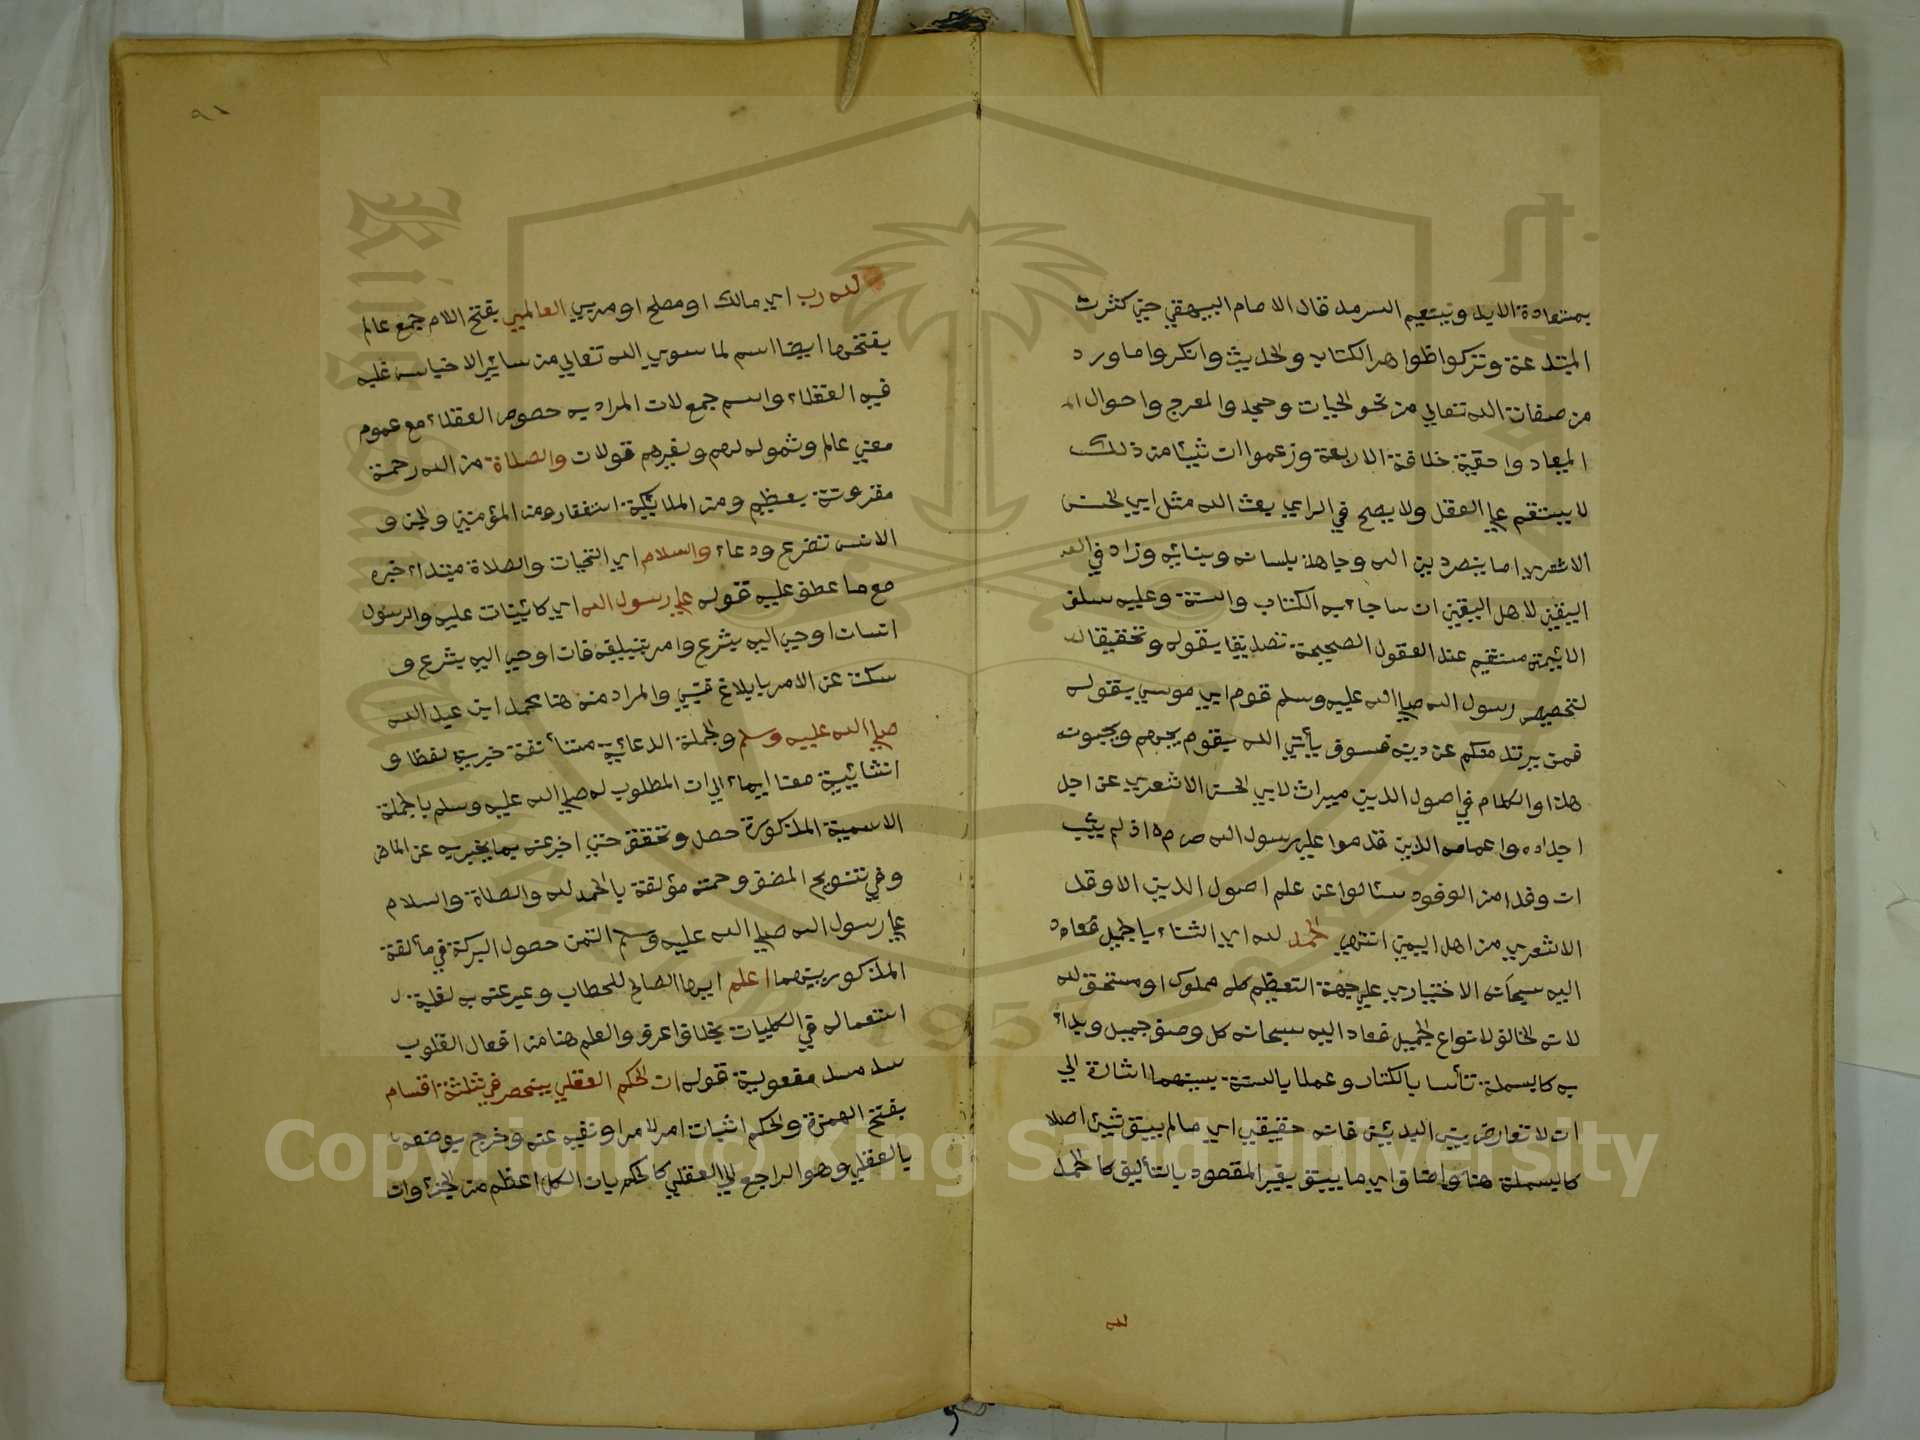 بمتعادة الابد وتبتعيم السرمد قال الامام البيهقي حتي كثرت
المبتدعة وتركوا ظواهر الكتاب والحديث وانكروا ما ورد
من صفات الله تعالي من نحو الحيات وحجد والمعرج واحوال
الميعاد واحقية خلافة الاربعة وزعموا ان شيئا من ذلك
لا يستقيم علي العقل ولا يصح في الراي بعث الله مثل ابي الحسن
الاشعري اما ينصر دين الله وجاهد بلسانه وبنانه وزاد في
اليقين لاهل اليقين ان ما جاء به الكتاب والسنة وعليه سلف
الائيمة مستقيم عند العقول الصحيحة تصديقا بقوله وتحقيقا
لتخصيص رسول الله صلي الله عليه وسلم قوم ابي موسي بقوله
فمن يرتد منكم عن دينه فسوف يأتي الله بقوم يحبهم ويحبونه
هذا والكلام في اصول الدين ميراث لابي الحسن الاشعري عن اجل
اجداده واعمامه الذين قدموا علي رسول الله ص م اذ لم يثبت
ان وفدا من الوفود سئالوا عن علم اصول الدين الا وفد
الاشعري من اهل اليمن انتهي الحمد لله اي الثناء بالجميل فعاد
اليه سبحانه الاختياري علي جهة التعظيم كله مملوك او مستحق لله
لانه الخالق لانواع الجميل فعاد اليه سبحانه كل وصف جميل وبداء
به كالبسملة تأسا بالكتاب وعملا بالسنة بينهما اشارة الي
ان لا تعارض بين البديئين فانه حقيقي اي مالم يسبق شيئ اصلا
كالبسملة هنا واضاق اي ما يسبق بغير المقصود بالتأليف كالحمد
لله
٩١
لله رب اي مالك او مصلح او مربي العالمين بفتح اللام جمع عالم
بفتحها ايضا اسم لما سوي الله تعالي من سائر الاجناس غلبه
فيه العقلاء واسم جمع لان المراد به خصوص العقلاء مع عموم
معني عالم وشموله لهم ولغيرهم قولان والصلاة من الله رحمة
مقرونة بعظيم ومن الملائيكة استغفار ومن المؤمنين والجن و
الانس تضرع ودعاء والسلام اي التحيات والصلاة مبتداء خبره
مع ما عطف عليه قوله علي رسول الله اي كائينان عليه والرسول
انسان اوحي اليه بشرع وامر بتبليغه فان اوحي اليه بشرع و
سكت عن الامر بابلاغ فنبي والمراد منه هنا محمد ابن عبد الله
صلي الله عليه وسلم والجملة الدعائية مستأنفة خبرية لفظا و
انشائيية معنا ايماء الي ان المطلوب له صلي الله عليه وسلم بالجملة
الاسمية المذكورة حصل وتحقق حتي اخبر عنه بما يخبر به عن الماض
وفي تتويج المصنف رحمته مؤلفة بالحمد لله والصلاة والسلام
علي رسول الله صلي الله عليه وسلم التمن حصول البركة في مألفة
المذكور بينهما اعلم ايها الصالح للخطاب وعبر عنه به لغلبة
استعماله في الكليات بخلاق اعرف والعلم هنا من افعال القلوب
سد مسد مفعولية قوله ان الحكم العقلي ينحصر في ثلثة اقسام
بفتح الهمزة والحكم اثبات امر لامر او نفيه عنه وخرج بوضعه
بالعقلي وهو الراجع للعقلي كالحكم بان الكل اعظم من الجزء وان
King Saud University
1957
Copyright © King Saud University